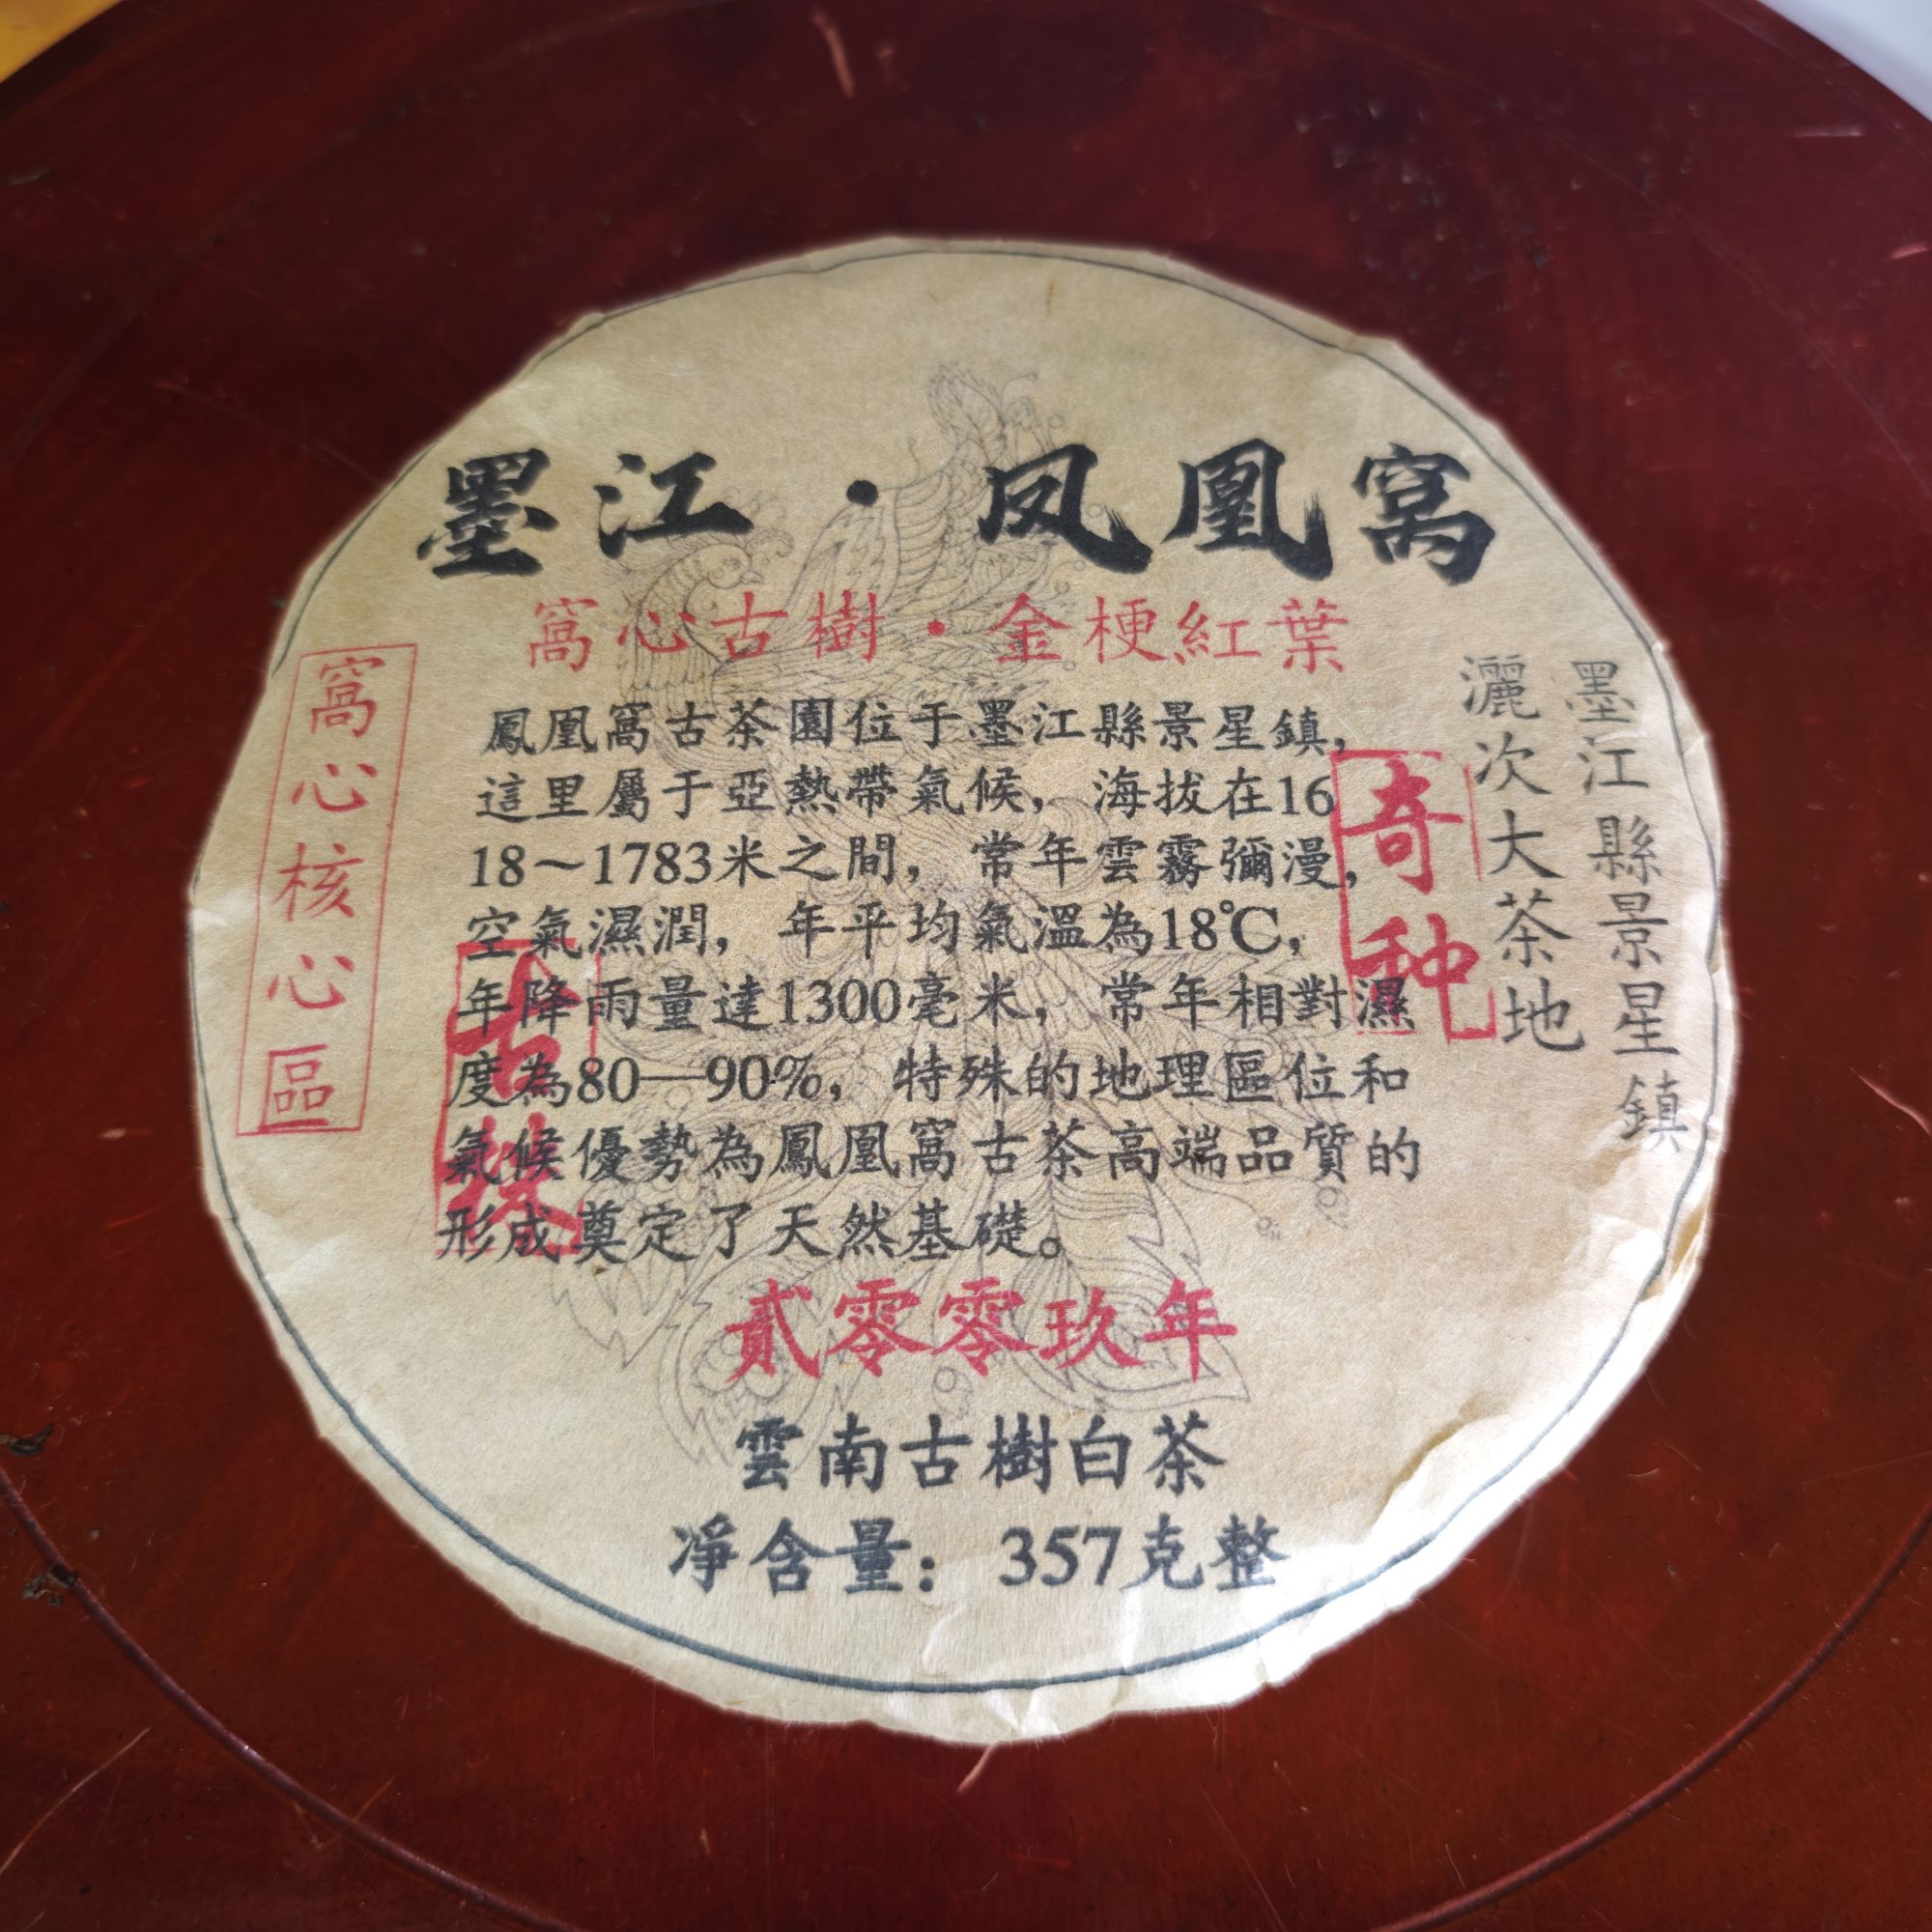 墨江·凤凰窩
窩心古樹·金梗紅葉
窩心核心區
鳳凰窩古茶園位于墨江縣景星鎮，
這里屬于亞熱帶氣候，海拔在16
18～1783米之間，常年雲霧彌漫，
空氣濕潤，年平均氣溫為18℃，
年降雨量達1300毫米，常年相對濕
度為80—90%，特殊的地理區位和
氣候優勢為鳳凰窩古茶高端品質的
形成奠定了天然基礎。
奇种
墨江縣景星鎮
灑次大茶地
貳零零玖年
雲南古樹白茶
凈含量：357克整